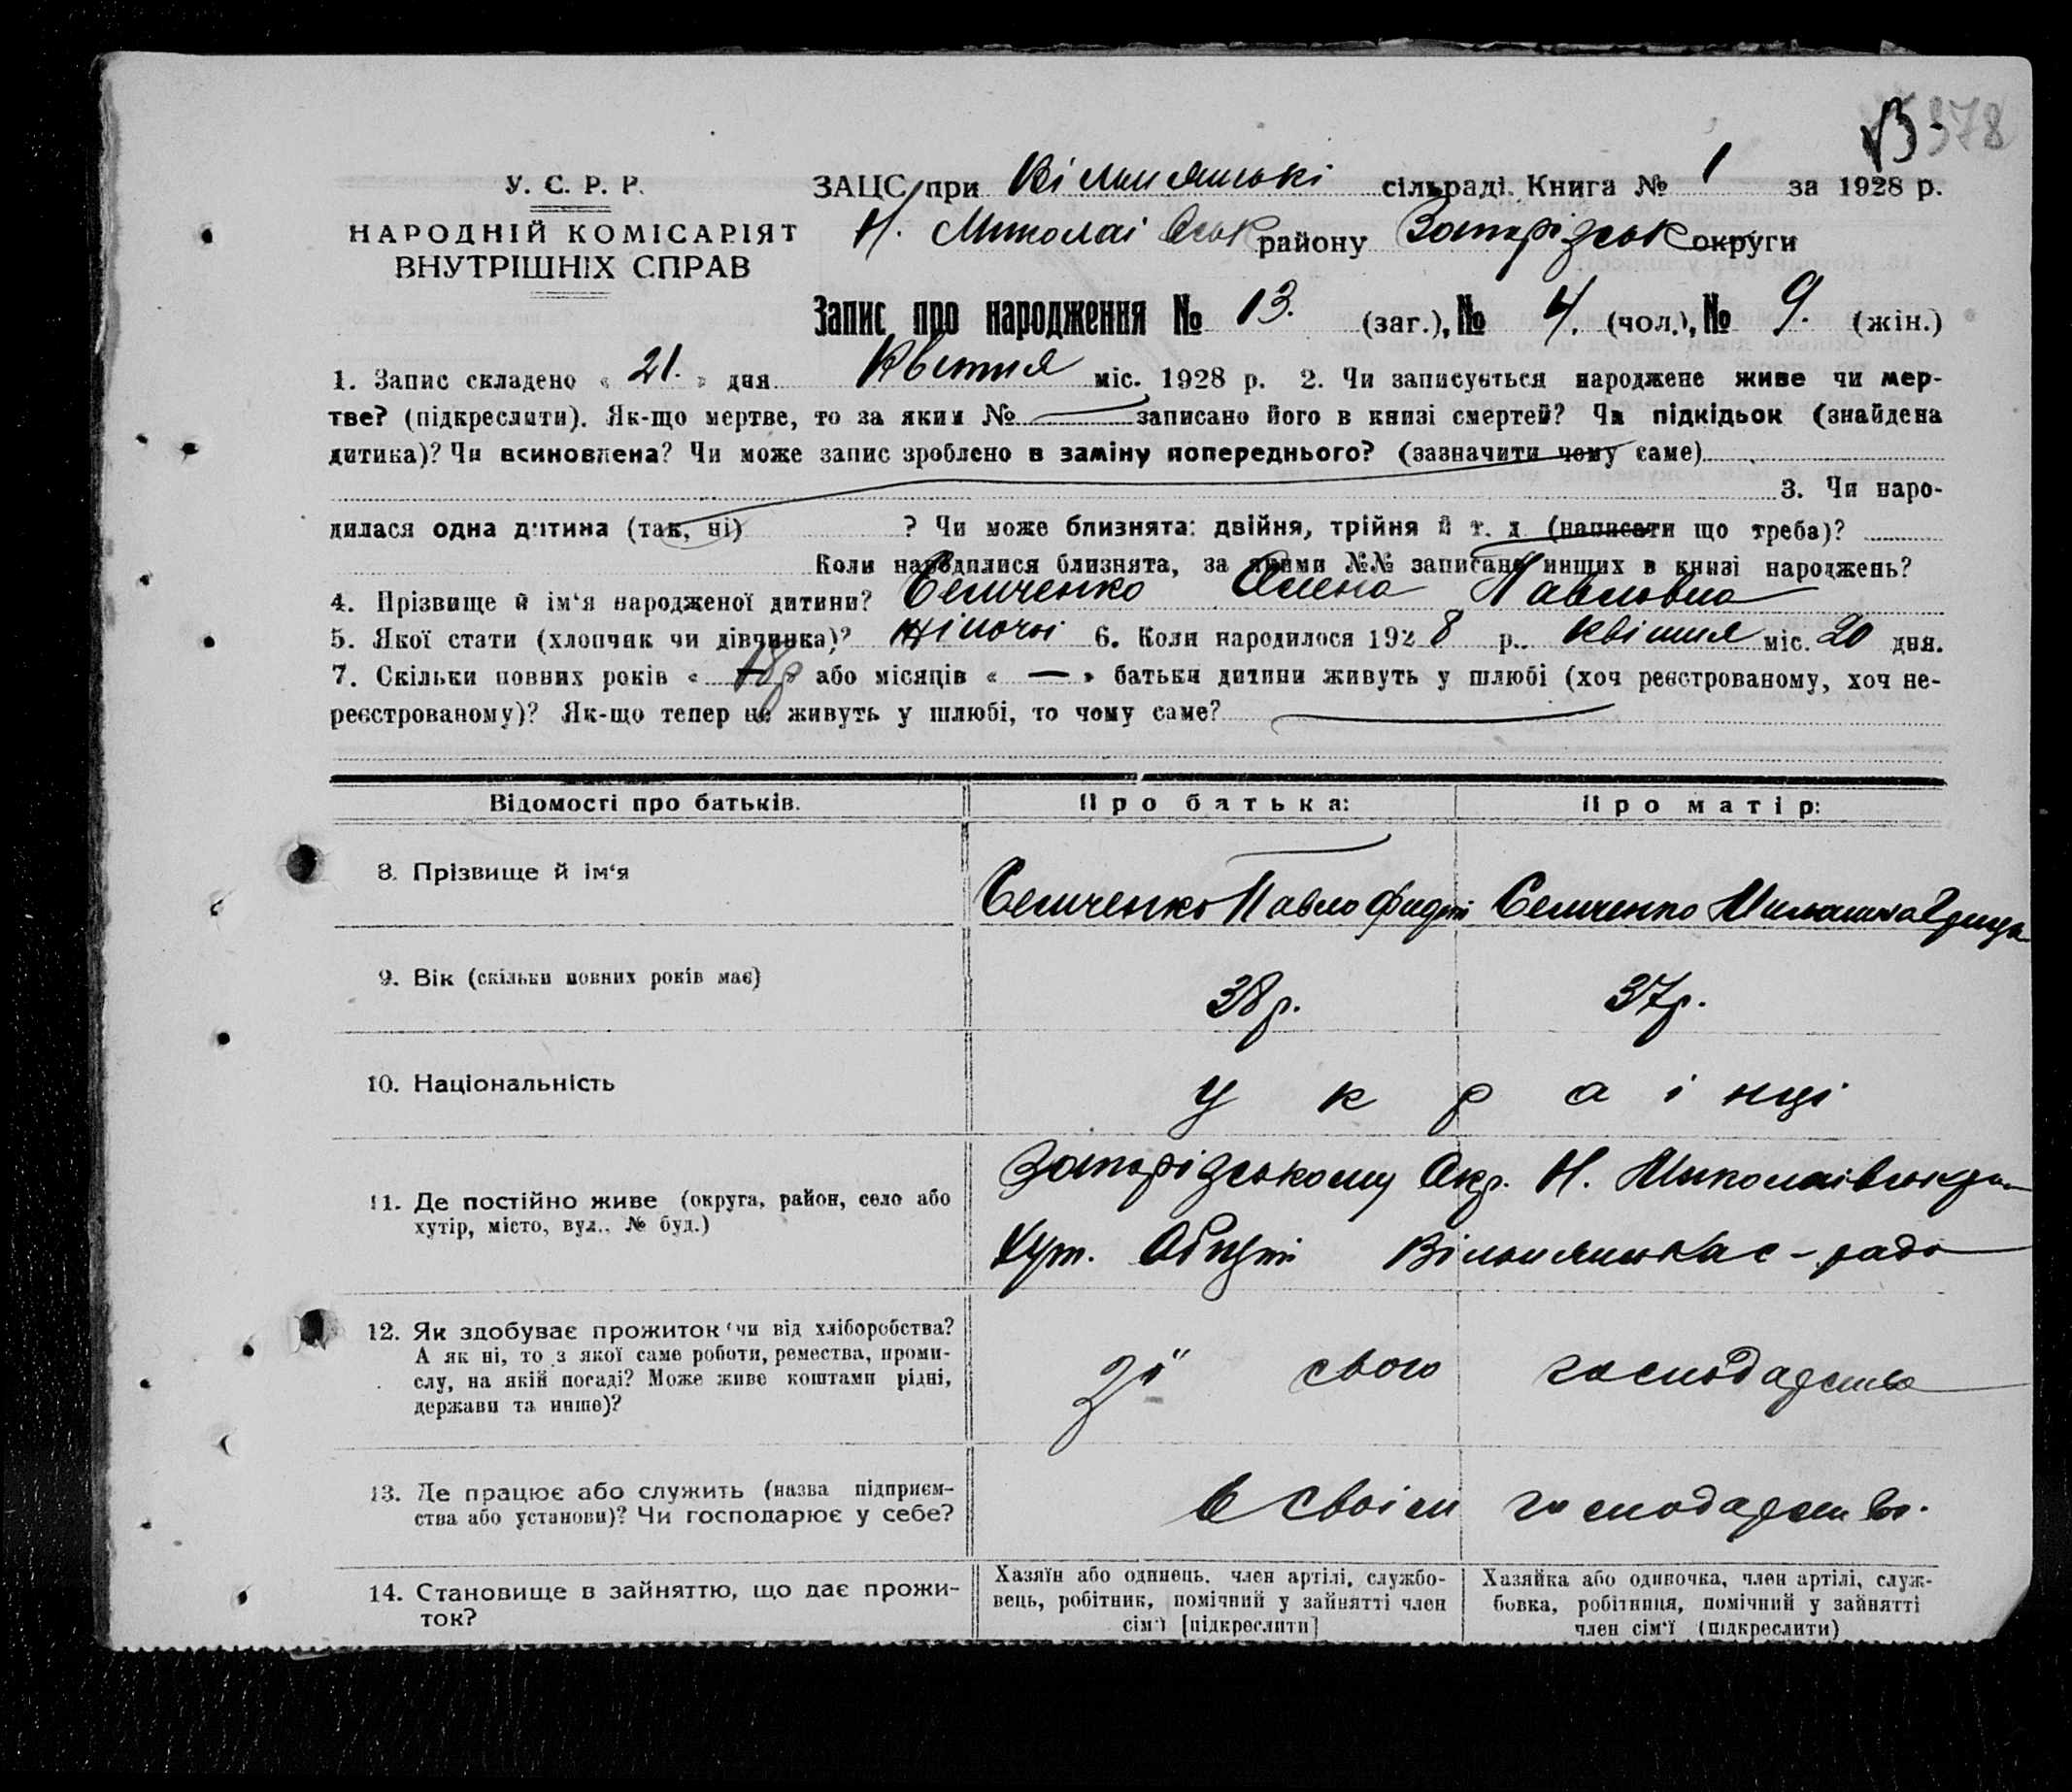 378
У. С. Р. Р.
НАРОДНІЙ КОМІСАРІЯТ
ВНУТРІШНІХ СПРАВ
ЗАЦС при Вільнянські сільраді. Книга № 1 за 1928 р.
Н. Миколаівськ району Запорізськ округи
Запис про народження № 13. (заг.), № 4. (чол.), № 9. (жін.)
1. Запис складено « 21. » дня Квітня міс. 1928 р. 2. Чи записується народжене живе чи мер-
тве? (підкреслити). Як-що мертве, то за яким № записано його в книзі смертей? Чи підкідьок (знайдена
дитика)? Чи всиновлена? Чи може запис зроблено в заміну попереднього? (зазначити чому саме)
3. Чи наро-
дилася одна дитина (так, ні) ? Чи може близнята: двійня, трійня й т. д. (написати що треба)?
Коли народилися близнята, за якими №№ записано инших в книзі народжень?
4. Прізвище й ім‘я народженої дитини? Семченко Олена Павловна
5. Якої стати (хлопчик чи дівчинка)? жіночі 6. Коли народилося 1928 р. квітня міс. 20 дня.
7. Скільки повних років « 18р або місяців « — » батьки дитини живуть у шлюбі (хоч реєстрованому, хоч не-
реєстрованому)? Як-що тепер не живуть у шлюбі, то чому саме?
Відомості про батьків. Про батька: Про матір:
8. Прізвище й ім‘я
Семченко Павло Семченко
9. Вік (скільки повних років має)
38р. 37р.
10. Національність
украінці
11. Де постійно живе (округа, район, село або
хутір, місто, вул., № буд.)
Запорізському Окр. Н. Миколаівськ
Хут. Вільнянська с-рада
12. Як здобуває прожиток чи від хліборобства?
А як ні, то з якої саме роботи, ремества, проми-
слу, на якій посаді? Може живе коштами рідні,
держави та инше)?
зі свого господарства
13. Де працює або служить (назва підприєм-
ства або установи)? Чи господарює у себе?
в своім господарстві.
14. Становище в зайняттю, що дає прожи-
ток?
Хазяїн або одинець, член артілі, службо-
вець, робітник, помічний у зайнятті член
сім‘ї [підкреслити]
Хазяйка або одиночка, член артілі, служ-
бовка, робітниця, помічний у зайнятті
член сім‘ї (підкреслити)